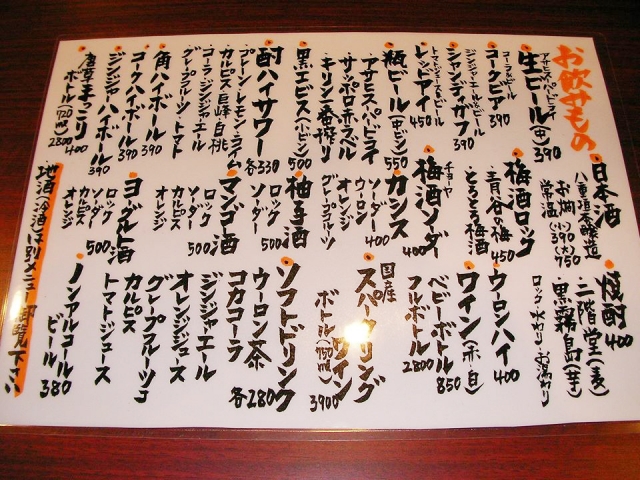 お飲みもの
生ビール(中)390
アサヒスーパードライ
コークビア390
コーラ&ビール
シャンディガフ390
ジンジャーエール&ビール
レッドアイ450
トマトジュース&ビール
瓶ビール(中ビン)550
・アサヒスーパードライ
・サッポロ赤ラベル
・キリン一番搾り
・黒エビス(小ビン)500
酎ハイサワー各330
・プレーン・レモン・ライム
・カルピス・巨峰・白桃
・コーラ・ジンジャエール
・グレープフルーツ・トマト
角ハイボール390
コークハイボール390
ジンジャーハイボール390
唐草まっこり400
ボトル(720㎖)2800
日本酒
八重垣本醸造
お燗(小)390(大)750
常温
梅酒ロック
・青谷の梅450
・とろとろ梅酒
梅酒ソーダー400
チョーヤ
カシス
ソーダー400
ウーロン
オレンジ
グレープフルーツ
柚子酒
ロック500
ソーダー
マンゴー酒
ロック500
ソーダー
カルピス
オレンジ
ヨーグルト酒
ロック500
ソーダー
カルピス
オレンジ
地酒(冷酒)は別メニュー御覧下さい
焼酎400
二階堂(麦)
黒霧島(芋)
ロック・水わり・お湯わり
ウーロンハイ400
ワイン(赤・白)
ベビーボトル850
フルボトル2800
国産
スパークリングワイン
ボトル(750㎖)3900
ソフトドリンク各280
ウーロン茶
コカコーラ
ジンジャエール
オレンジジュース
グレープフルーツ
カルピス
トマトジュース
ノンアルコールビール380